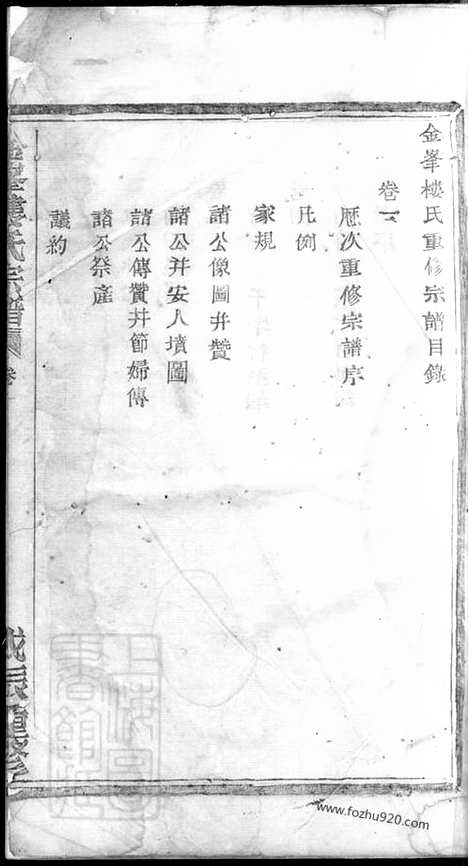 金峯樓氏重修宗譜目錄
卷一
歷次重修宗譜序
凡例
家規
諸公像圖并贊
諸公并安人墳圖
諸公傳贊并節婦傳
諸公祭產
議約
樓氏宗譜
卷
戊辰重修
www.fozhu920.com